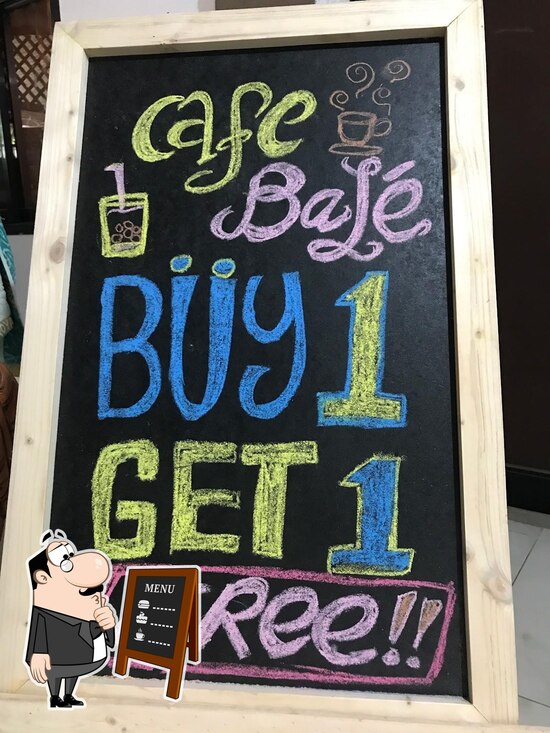 Cafe
Balé
BÜY 1
GET 1
FRee!!
MENU